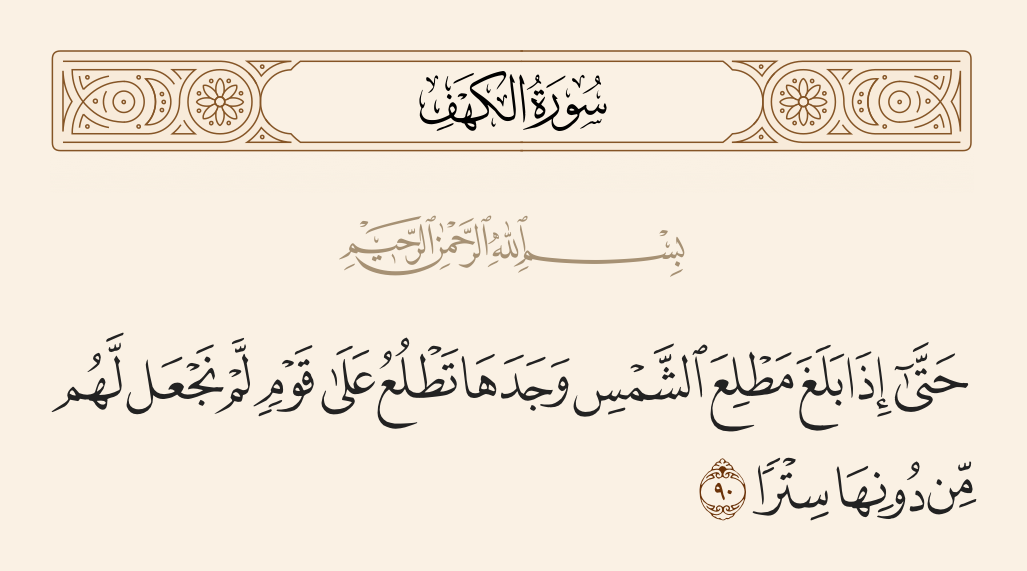 سُورَةُ الكَهَفِ
بِسْمِ ٱللَّهِ ٱلرَّحْمَٰنِ ٱلرَّحِيمِ
حَتَّىٰٓ إِذَا بَلَغَ مَطْلِعَ ٱلشَّمْسِ وَجَدَهَا تَطْلُعُ عَلَىٰ قَوْمٍ لَّمْ نَجْعَل لَّهُم
مِّن دُونِهَا سِتْرًا ٩٠